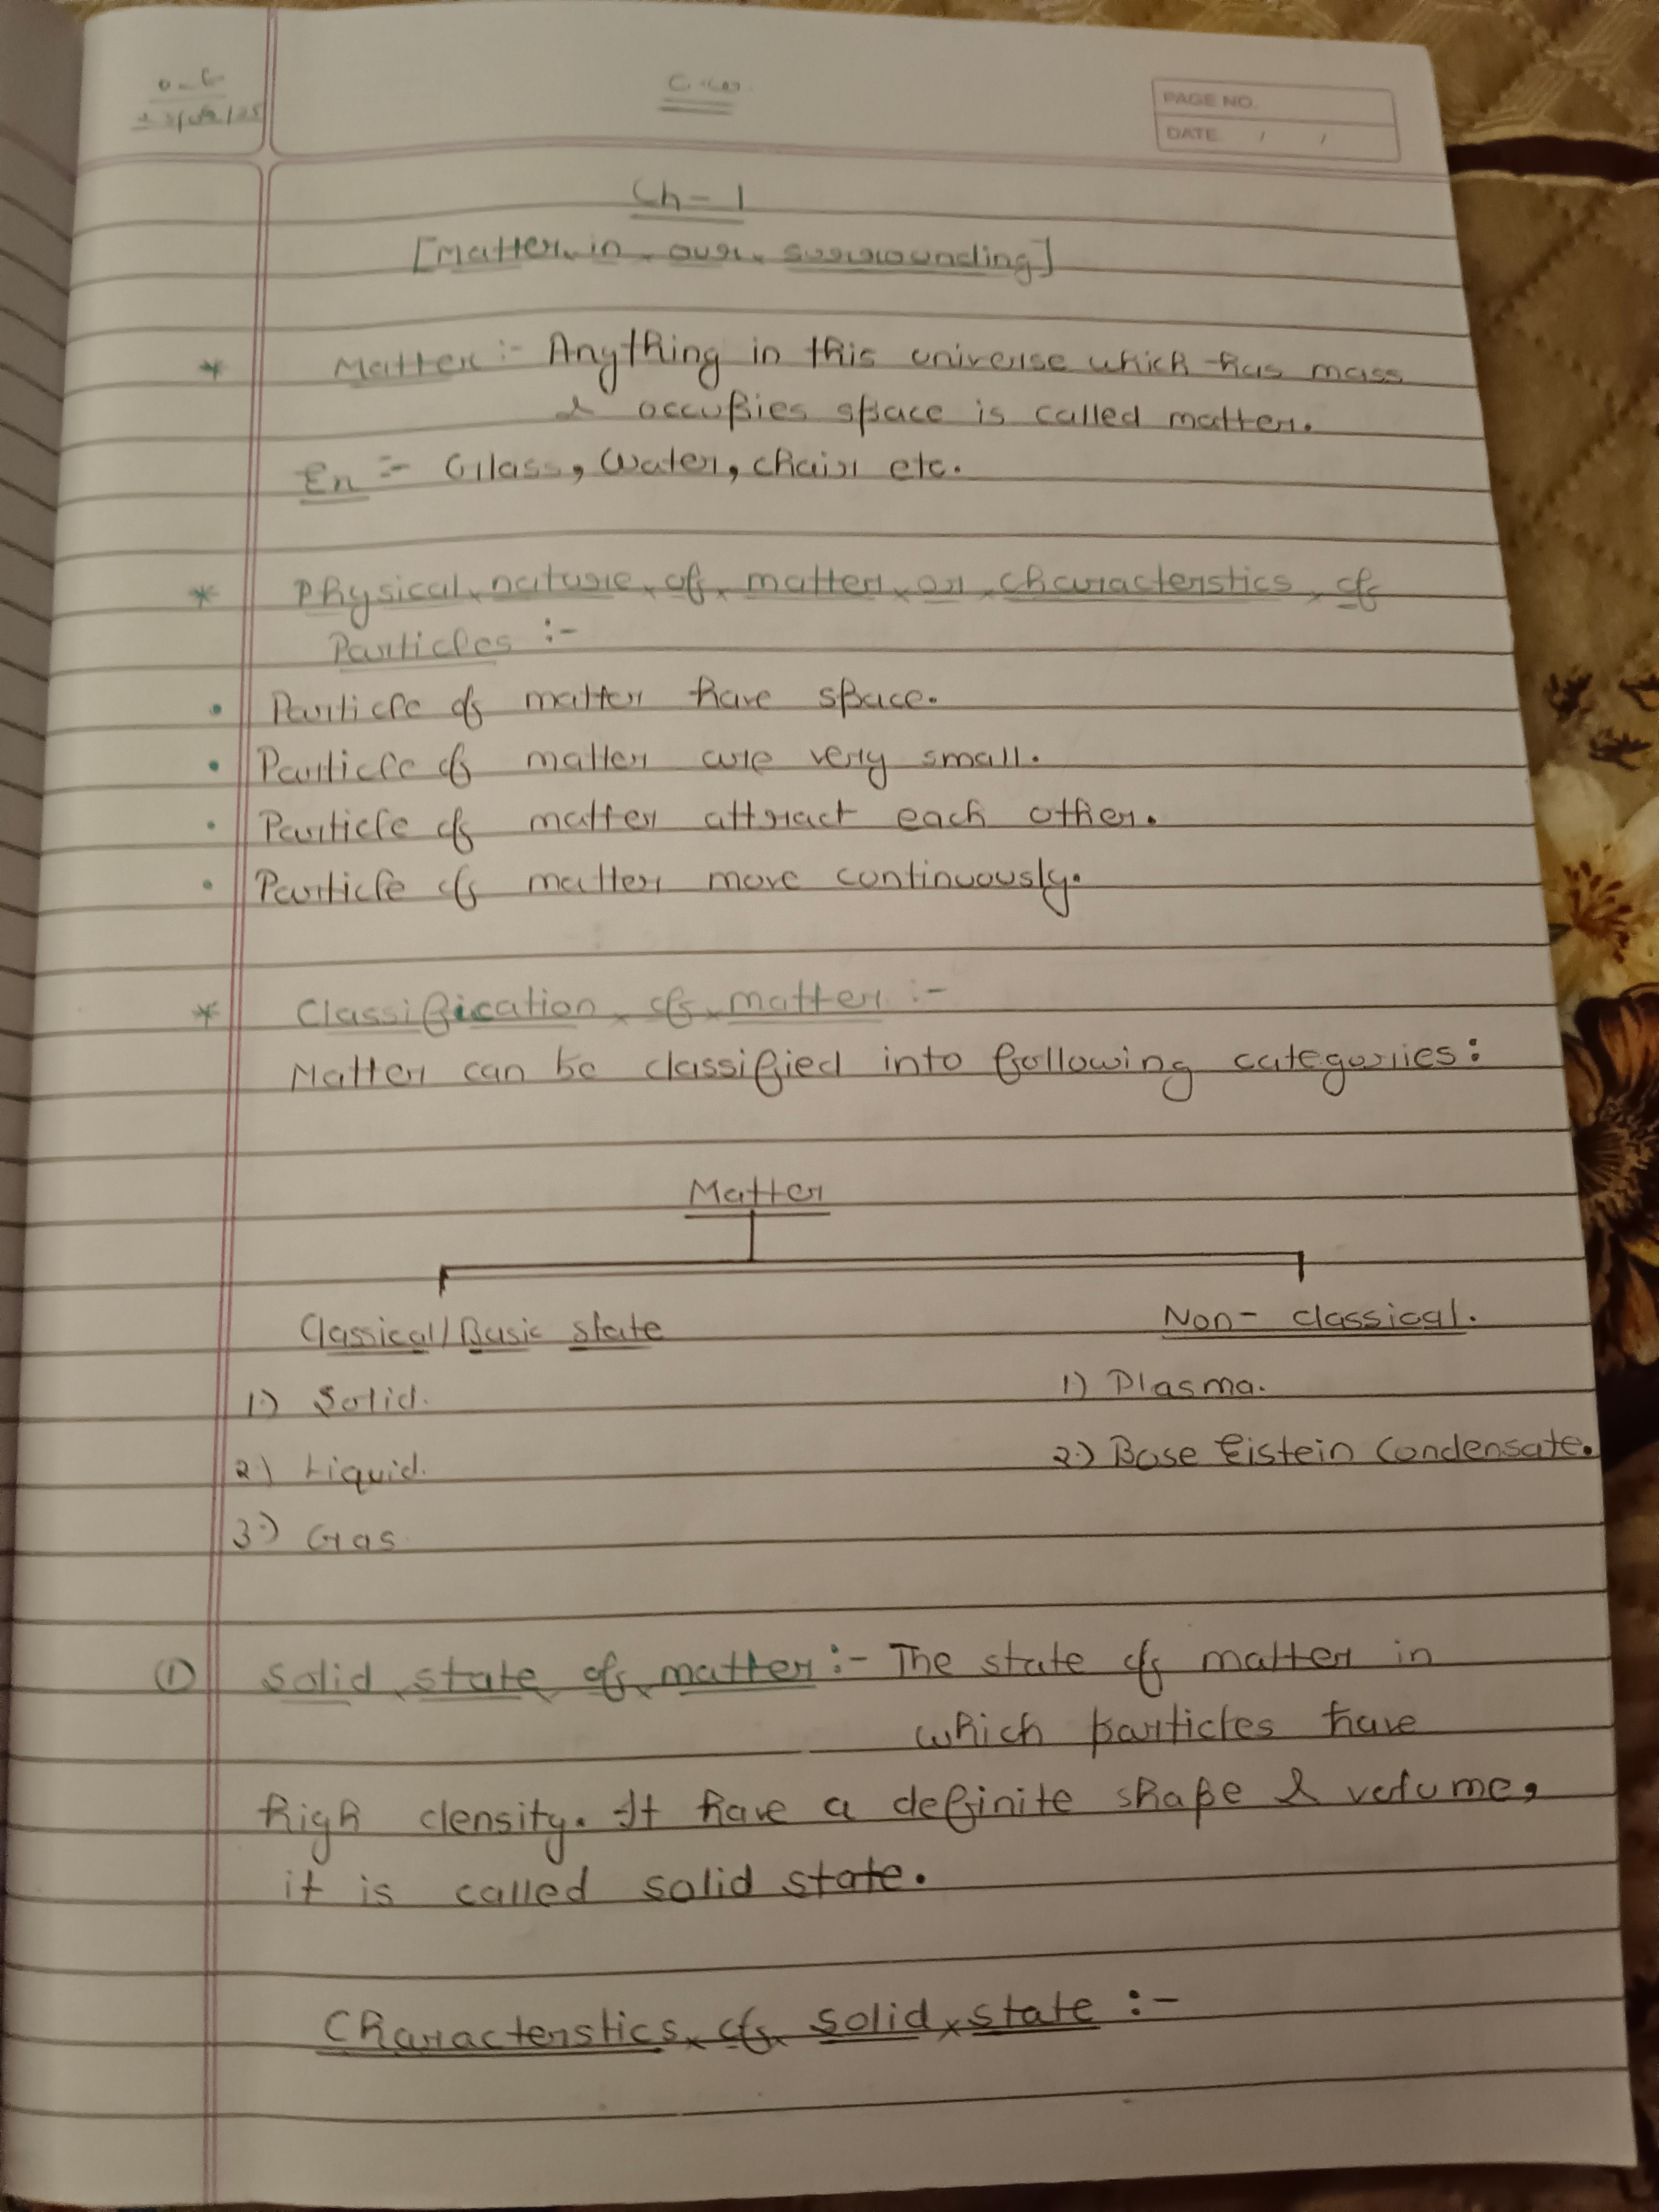 PAGE NO.
DATE / /
Ch-1
[Matter in our surrounding]
* Matter :- Anything in this universe which has mass
& occupies space is called matter.
Ex :- Glass, Water, chair etc.
* Physical nature of matter or characterstics of
Particles :-
• Particle of matter have space.
• Particle of matter are very small.
• Particle of matter attract each other.
• Particle of matter move continuously.
* Classification of matter :-
Matter can be classified into following categories:
Matter
Classical/Basic state Non- classical.
1) Solid. 1) Plasma.
2) Liquid. 2) Bose Eistein Condensate.
3) Gas
① Solid state of matter :- The state of matter in
which particles have
high density. It have a definite shape & volume,
it is called solid state.
Characterstics of solid state :-